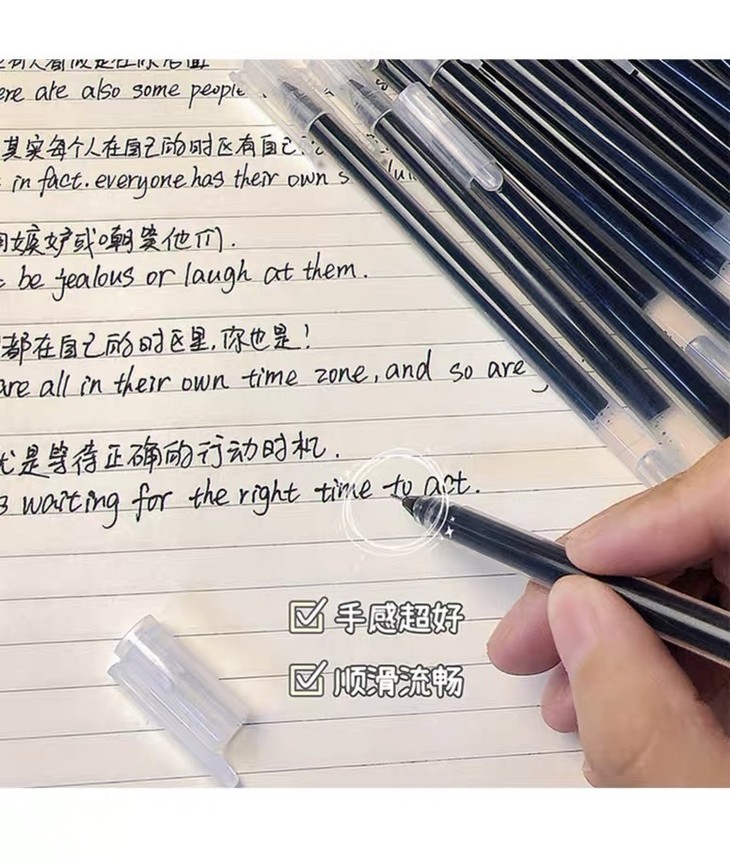 ere are also some people
其实每个人在自己的时区有自己
in fact. everyone has their own s
嫉妒或嘲笑他们.
be jealous or laugh at them.
都在自己的时区里,你也是!
are all in their own time zone, and so are
是等待正确的行动时机.
waiting for the right time to act.
手感超好
顺滑流畅